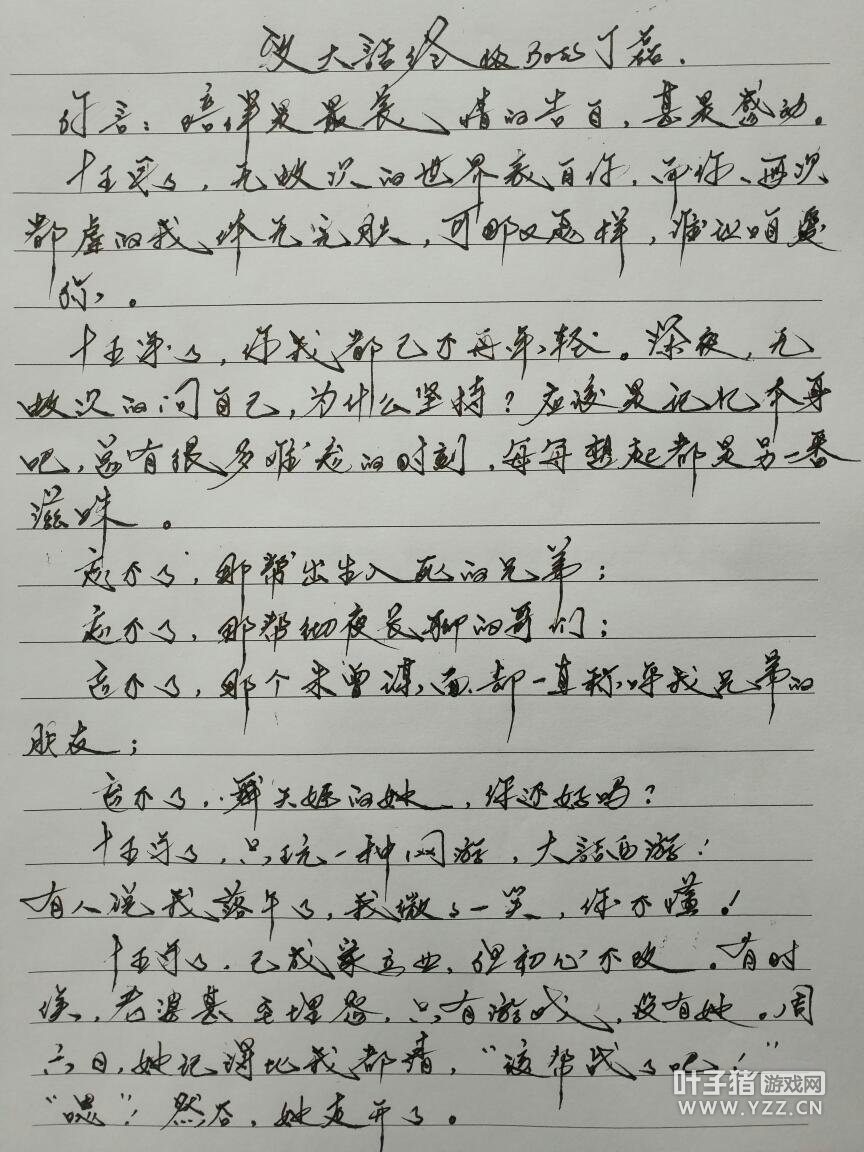 致大話终极Boss丁磊.
你言：陪伴是最长情的告白，甚是感动。
十五年了，无数次的世界表白你，而你、再次
都虐的我体无完肤，可那又怎样，谁让咱爱
你。
十五年了，你我都已不再年轻。深夜，无
数次的问自己，为什么坚持？应该是记忆本身
吧，总有很多难忘的时刻，每每想起都是另一番
滋味。
忘不了，那帮出生入死的兄弟；
忘不了，那帮彻夜长聊的哥们；
忘不了，那个未曾谋面、却一直称呼我兄弟的
朋友；
忘不了，舞天姬的她，你还好吗？
十五年了，只玩一种网游，大話西游！
有人说我落伍了，我微了一笑，你不懂！
十五年了，已成家立业，但初心不改。有时
候，老婆甚至埋怨，只有游戏，没有她。周
六日，她记得比我都清，“该帮战了吧！”
“嗯”！然后，她走开了。
叶子猪游戏网
WWW.YZZ.CN